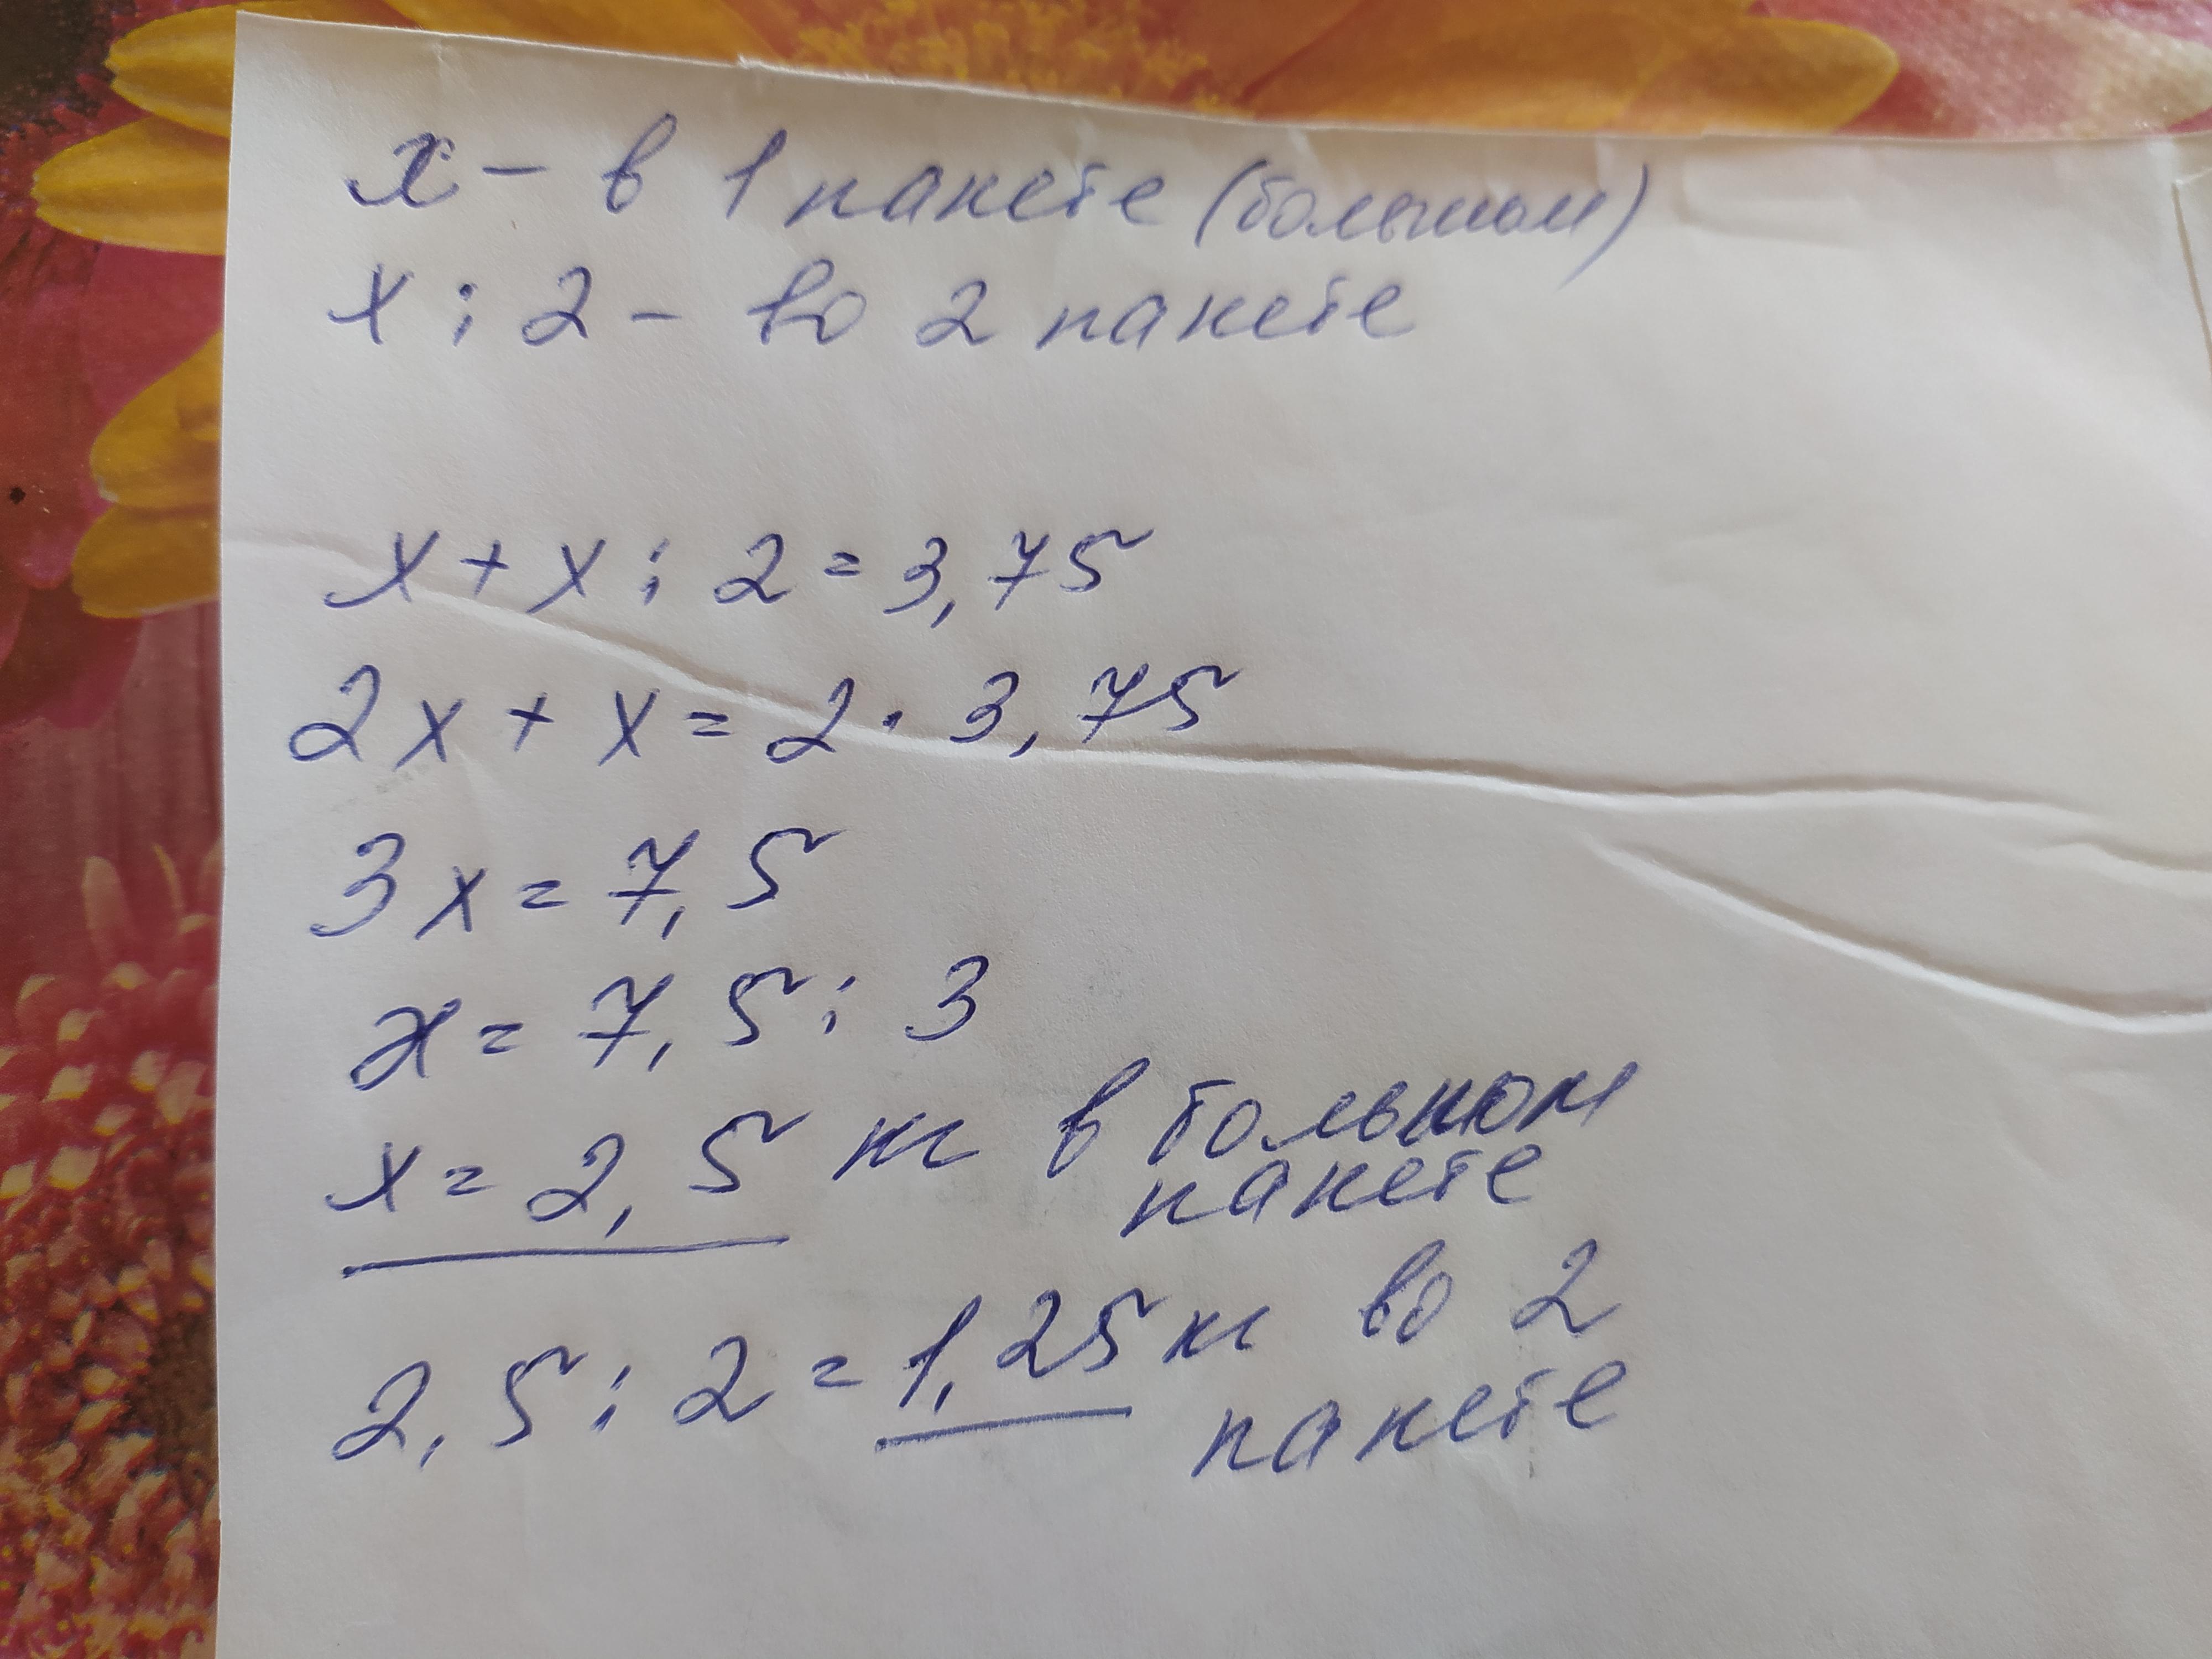 x - в 1 пакете (большом)
x : 2 - во 2 пакете
x + x : 2 = 3,75
2x + x = 2 · 3,75
3x = 7,5
x = 7,5 : 3
x = 2,5 кг в большом
пакете
2,5 : 2 = 1,25 кг во 2
пакете